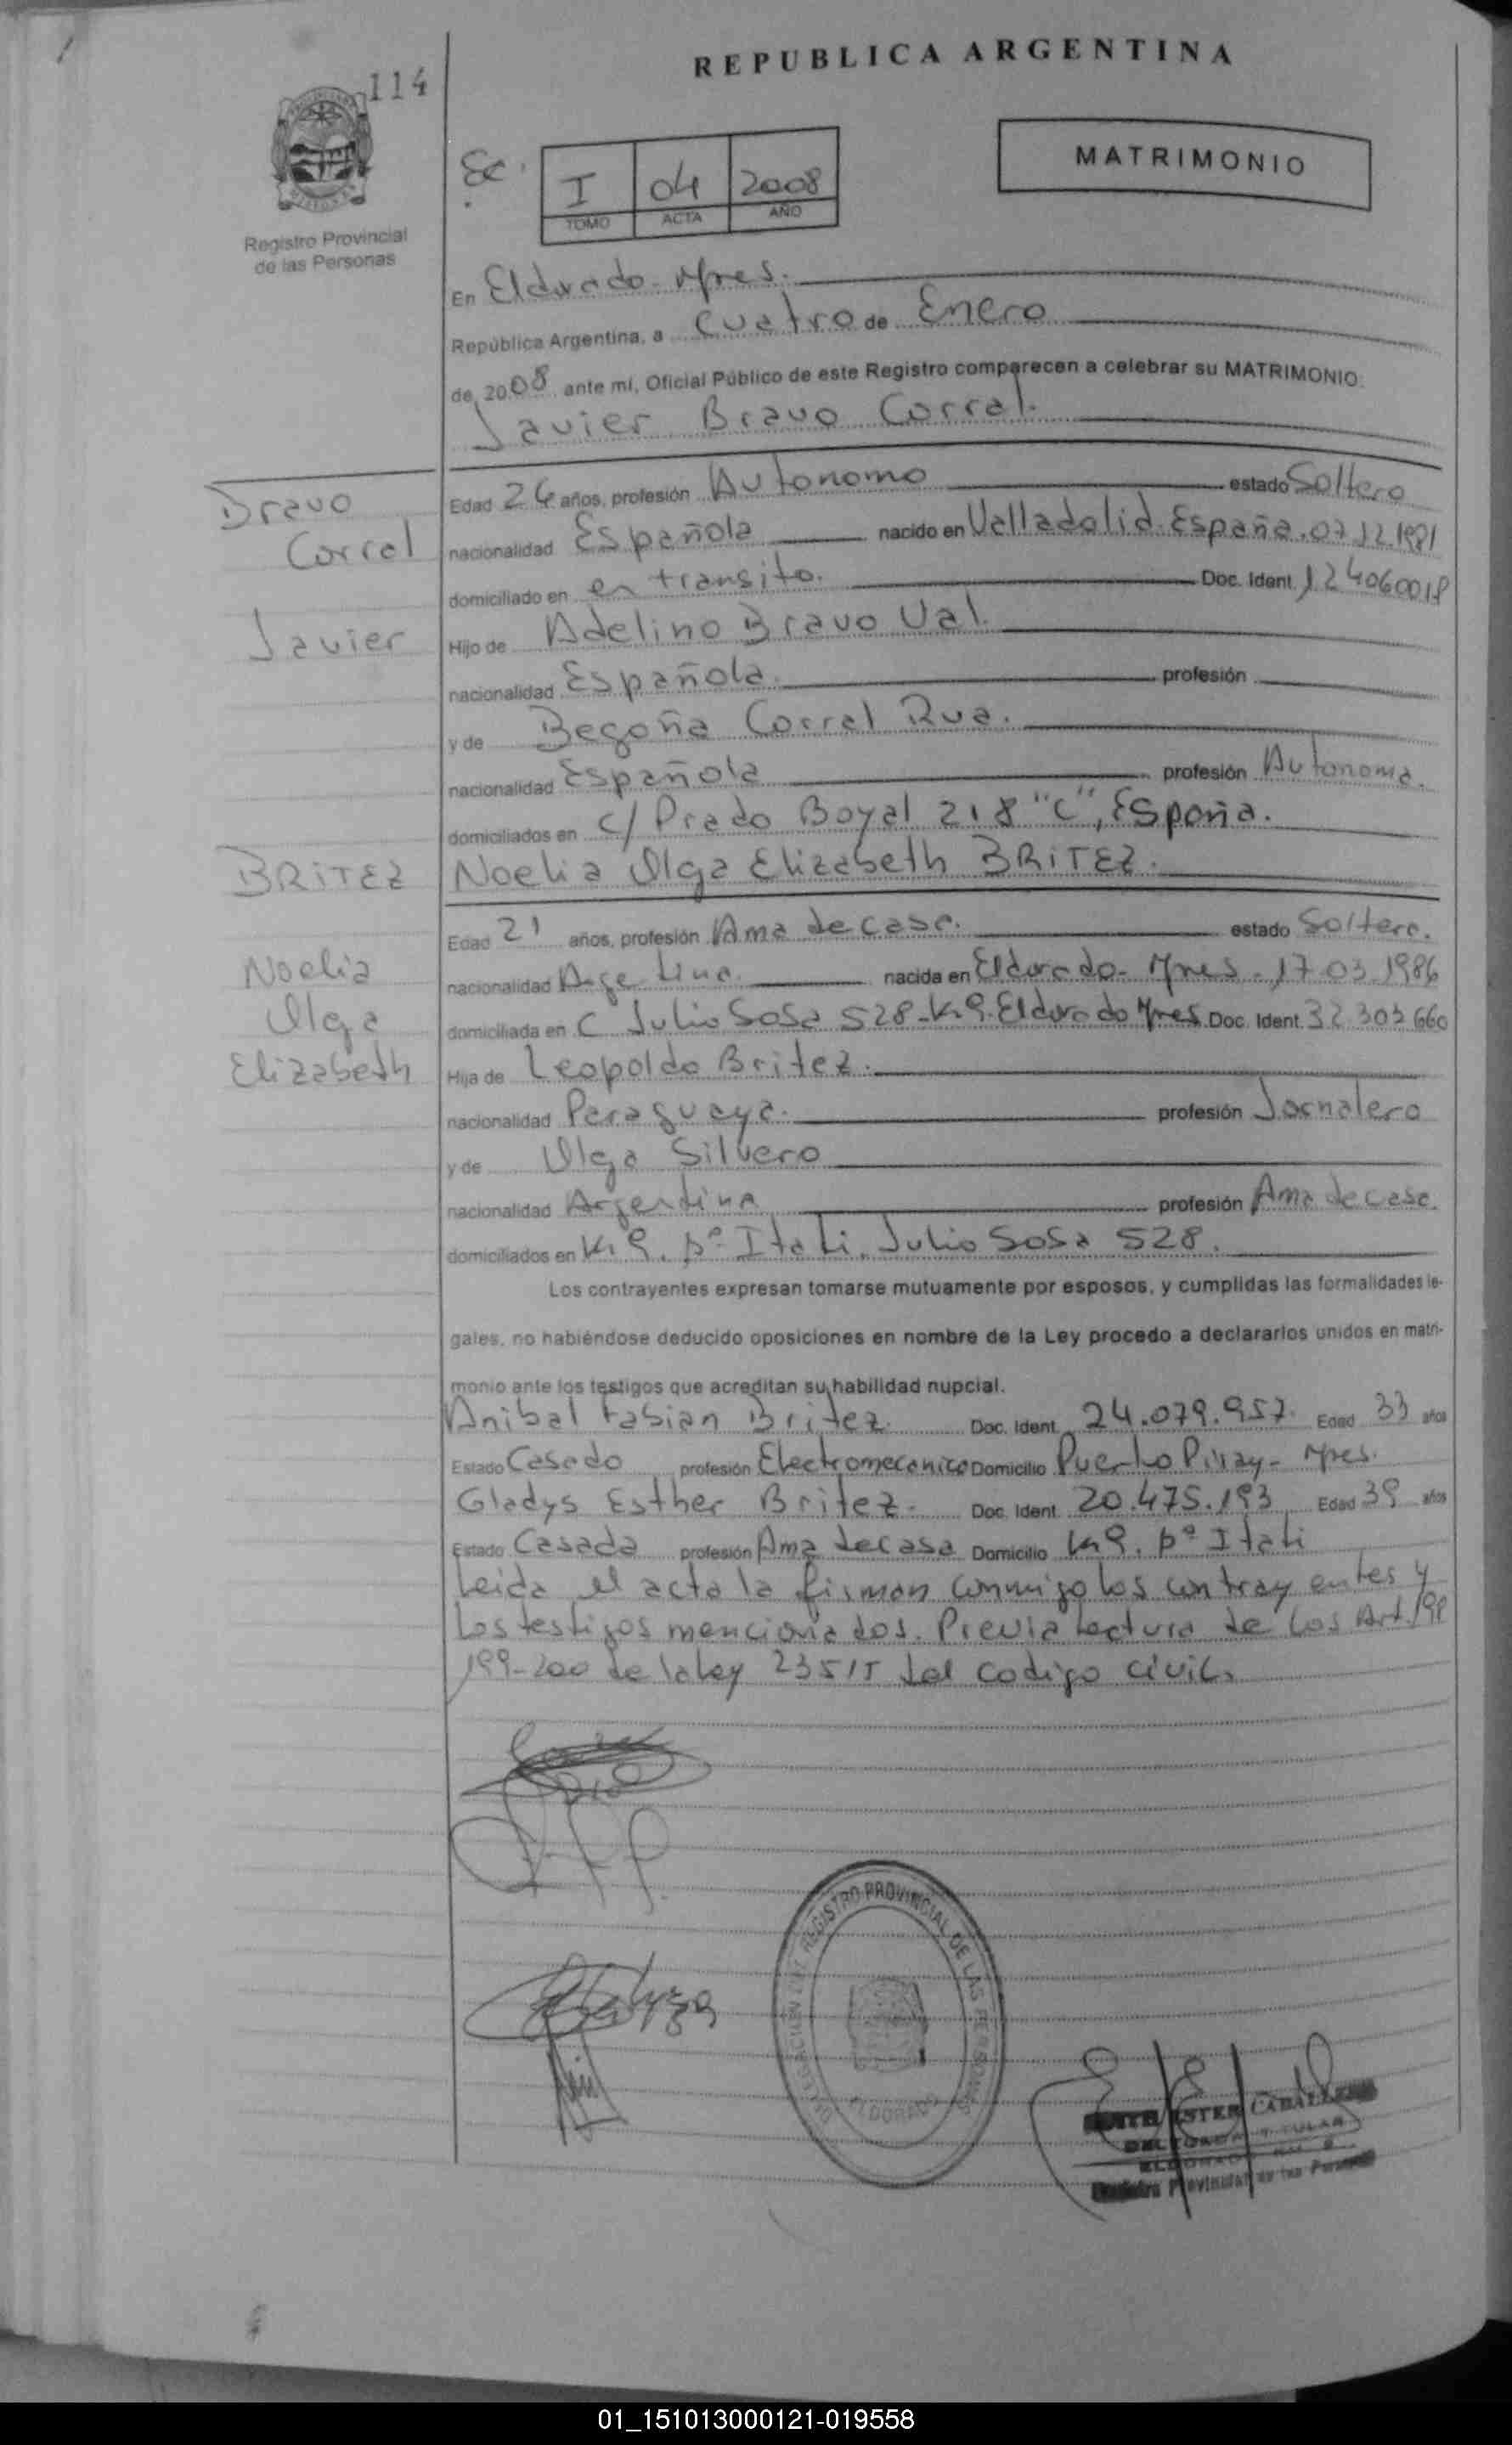 114
REPUBLICA ARGENTINA
MATRIMONIO
I 04 2008
TOMO ACTA AÑO
Registro Provincial
de las Personas
En Eldorado - Mnes.
República Argentina, a Cuatro de Enero
de 2008 ante mí, Oficial Público de este Registro comparecen a celebrar su MATRIMONIO:
Javier Bravo Corral.
Bravo
Corral
Javier
Edad 26 años, profesión Autonomo estado Soltero
nacionalidad Española nacido en Valladolid España. 07.12.1981
domiciliado en en transito. Doc. Ident. 12406001P
Hijo de Adelino Bravo Val.
nacionalidad Española. profesión
y de Begoña Corral Rua.
nacionalidad Española profesión Autonoma.
domiciliados en c/ Prado Boyal 218 "C", España.
BRITEZ
Noelia Olga Elizabeth BRITEZ.
Noelia
Olga
Elizabeth
Edad 21 años, profesión Ama de casa. estado Soltera.
nacionalidad Argentina. nacida en Eldorado - Mnes - 17.03.1986
domiciliada en C Julio Sosa 528 - K.9. Eldorado Mnes. Doc. Ident. 32.303.660
Hija de Leopoldo Britez.
nacionalidad Paraguaya. profesión Jornalero
y de Olga Silvero
nacionalidad Argentina profesión Ama de casa.
domiciliados en K 9. Bº Itati. Julio Sosa 528.
Los contrayentes expresan tomarse mutuamente por esposos, y cumplidas las formalidades le-
gales, no habiéndose deducido oposiciones en nombre de la Ley procedo a declararlos unidos en matri-
monio ante los testigos que acreditan su habilidad nupcial.
Anibal Fabian Britez. Doc. Ident. 24.079.957. Edad 33 años
Estado Casado profesión Electromecanico Domicilio Puerto Piray - Mnes.
Gladys Esther Britez. Doc. Ident. 20.475.193 Edad 39 años
Estado Casada profesión Ama de casa Domicilio Km 9. Bº Itati
Leida el acta la firman conmigo los contrayentes y
los testigos mencionados. Previa lectura de los Art. 198
199-200 de la ley 23515 del codigo civil.
REGISTRO PROVINCIAL DE LAS PERSONAS
ELDORADO
ESTER CABALLERO
Registro Provincial de las Personas
01_151013000121-019558